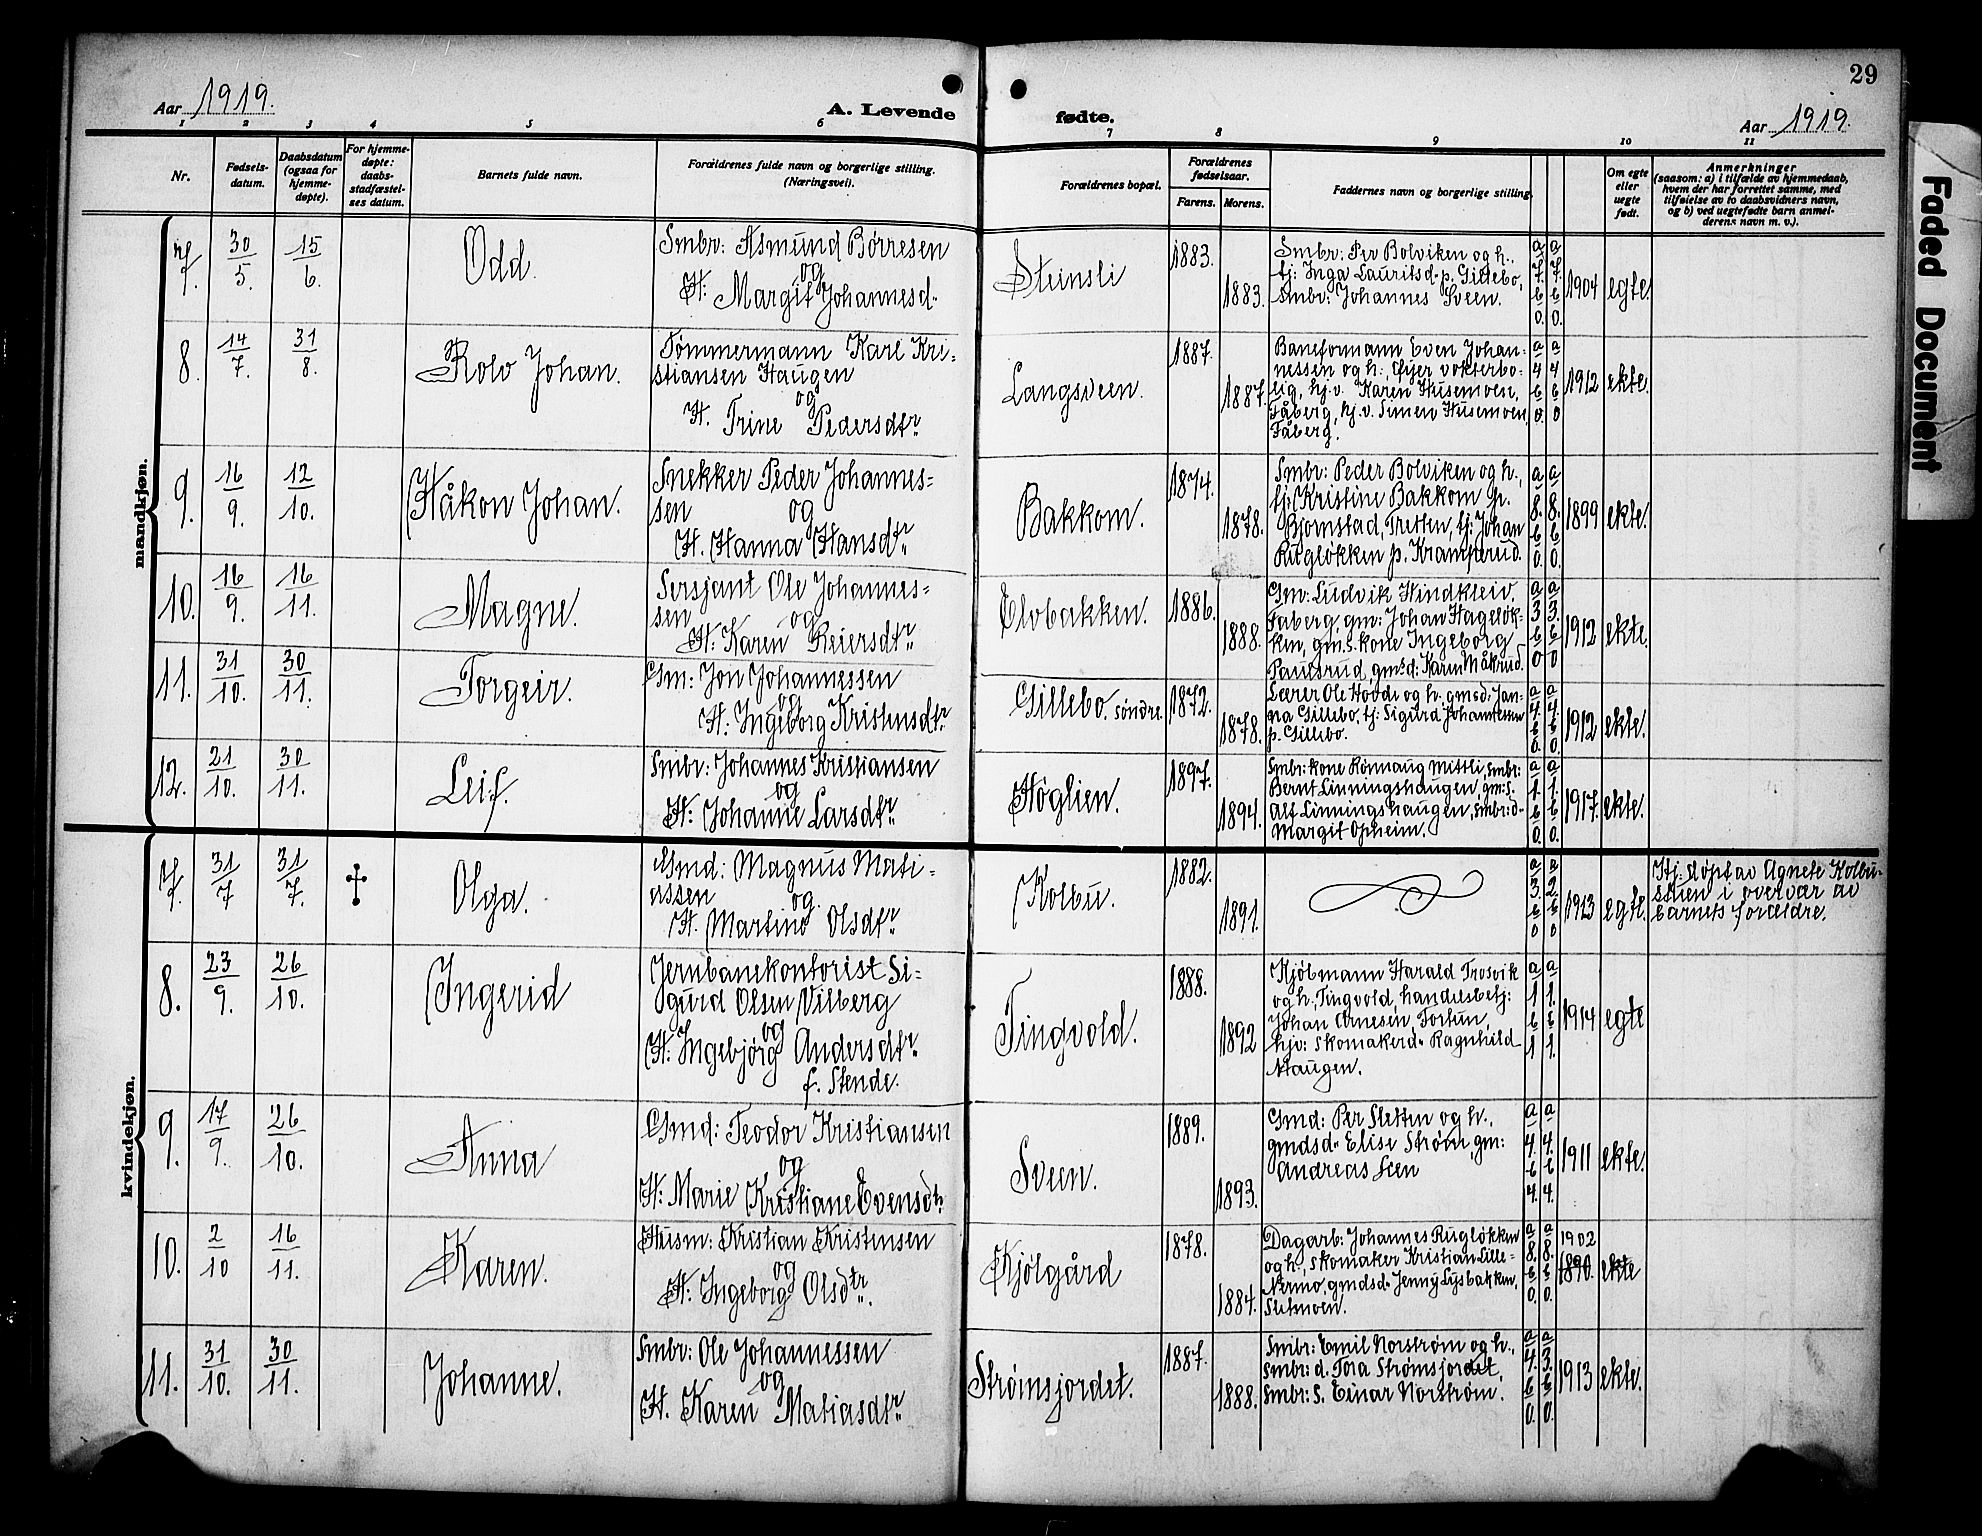 29
Aar 1919.
A. Levende
fødte.
Aar 1919.
1 2 3 4 5 6 7 8 9 10 11
Nr.
Fødsels-
datum.
Daabsdatum
(ogsaa for
hjemme-
døpte).
For hjemme-
døpte:
daabs-
stadfæstel-
ses datum.
Barnets fulde navn.
Forældrenes fulde navn og borgerlige stilling.
(Næringsvei).
Forældrenes bopæl.
Forældrenes
fødselsaar.
Farens. Morens.
Faddernes navn og borgerlige stilling.
Om egte
eller
uegte
født.
Anmerkninger
(saasom: a) i tilfælde av hjemmedaab,
hvem der har forrettet samme, med
tilføielse av to daabsvidners navn,
og b) ved uegtefødte barn anmel-
derens navn m. v.).
Faded Document
mandkjøn.
7. 30/5. 15/6. Odd.
Smbr: Asmund Børresen
og
H: Margit Johannesd.
Steinsli 1883. 1883.
Smbr: Per Bolviken og h.,
tj: Inga Lauritsd. p. Gillebo,
Smbr: Johannes Sveen.
a 7. b 0. a 7. b 0. 1904 egte.
8. 14/7. 31/8. Rolv Johan.
Tømmermann Karl Kri-
stiansen Haugen
og
H. Trine Pedersdtr.
Langsveen. 1887. 1887.
Baneformann Even Johan-
nessen og h., Øyer vokterbo-
lig, hj.v. Karen Husemoen,
Fåberg, hj.v. Simen Husemoen,
Fåberg.
a 4 b 0. a 4 b 0 1912 ekte.
9. 16/9. 12/10. Håkon Johan.
Snekker Peder Johannes-
sen og
H. Hanna Hansdtr.
Bakkom. 1874. 1878.
Smbr: Peder Bolviken og h.,
tj: Kristine Bakkom p.
Bjørnstad, Tretten, tj: Johan
Rugløkken p. Kramperud.
a 8. b 0. a 8. b 0. 1899 ekte.
10. 16/9. 16/11. Magne.
Sersjant Ole Johannes-
sen og
H. Karen Reiersdtr.
Elvbakken. 1886. 1888.
Gm: Ludvik Hindkleiv,
Faberg, gm: Johan Hageløk-
ken, gm.s. kone Ingeborg
Paulsrud, gmsd: Karen Måkrud.
a 3 b 0 a 3. b 0 1912 ekte.
11. 31/10. 30/11. Torgeir.
Gm: Jon Johannessen
og
H. Ingeborg Kristensdtr.
Gillebo. søndre. 1872. 1878.
Lærer Ole Hovde og h. gmsd: Jan-
na Gillebo, tj: Sigurd Johannessen
p. Gillebo.
a 4. b 0. a 4. b 0. 1912 ekte.
12. 21/10. 30/11. Leif.
Smbr: Johannes Kristiansen
og
H. Johanne Larsdtr.
Høglien. 1897. 1894.
Smbr: kone Rønnaug Mittli, smbr:
Bernt Linningshaugen, gm: s.
Alf Linningshaugen, smbr: d.
Margit Opheim.
a 1. b 0. a 1. b 0. 1917. ekte.
kvindekjøn.
7. 31/7 31/7. Olga.
Gmd: Magnus Mati-
assen og.
H. Martine Olsdtr.
Kolbu. 1882. 1891.
a 3. b 0 a 2. b 0 1913 egte.
Hj. døpt av Agnete Kolbu-
stuen i overvær av
barnets forældre.
8. 23/9. 26/10. Ingerid
Jernbanekontorist Si-
gurd Olsen Vilberg
og
H. Ingebjørg Andersdtr.
f. Stende.
Tingvold. 1888. 1892
Kjøbmann Harald Trosvik
og h., Tingvold, handelsbetj:
Johan Arnesen, Fortun,
hjv: skomakerd. Ragnhild
Haugen.
a 1 b 1 a 1. b 1. 1914 egte
9. 17/9. 26/10. Anna
Gmd: Teodor Kristiansen
og
H. Marie Kristiane Evensdtr.
Sveen. 1889. 1893.
Gmd: Per Sletten og h.,
gmdsd. Elise Strøm, gm:
Andreas Seen
a 4. b 4. a 4. b 4. 1911 ekte.
10. 2/10 16/11. Karen.
Husm: Kristian Kristensen
og
H. Ingeborg Olsdtr.
Kjølgård 1878. 1884.
Dagarb: Johannes Rugløkken
og h., skomaker Kristian Lille-
Nermo, gmdsd. Jenny Lysbakken,
Slitmoen.
a 8. b 0. a 8. b 0. 1902 1890. ekte
11. 31/10. 30/11. Johanne.
Smbr: Ole Johannessen
og
H. Karen Matiasdtr.
Strømsjordet. 1887. 1888.
Smbr: Emil Norstrøm og h.,
smbr: d. Tora Strømsjordet,
smbr: s. Einar Norstrøm.
a 4. b 0. a 3. b 0. 1913 ekte.